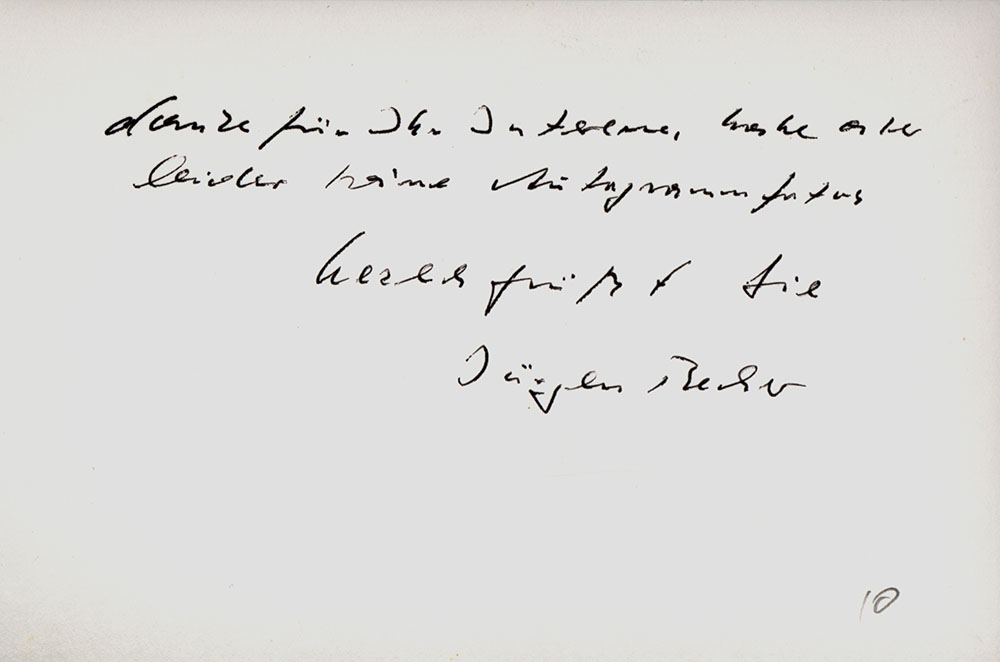 danke für Ihr Interesse, habe aber
leider keine Autogrammfotos
herzlich grüßt Sie
Jürgen Becker
10